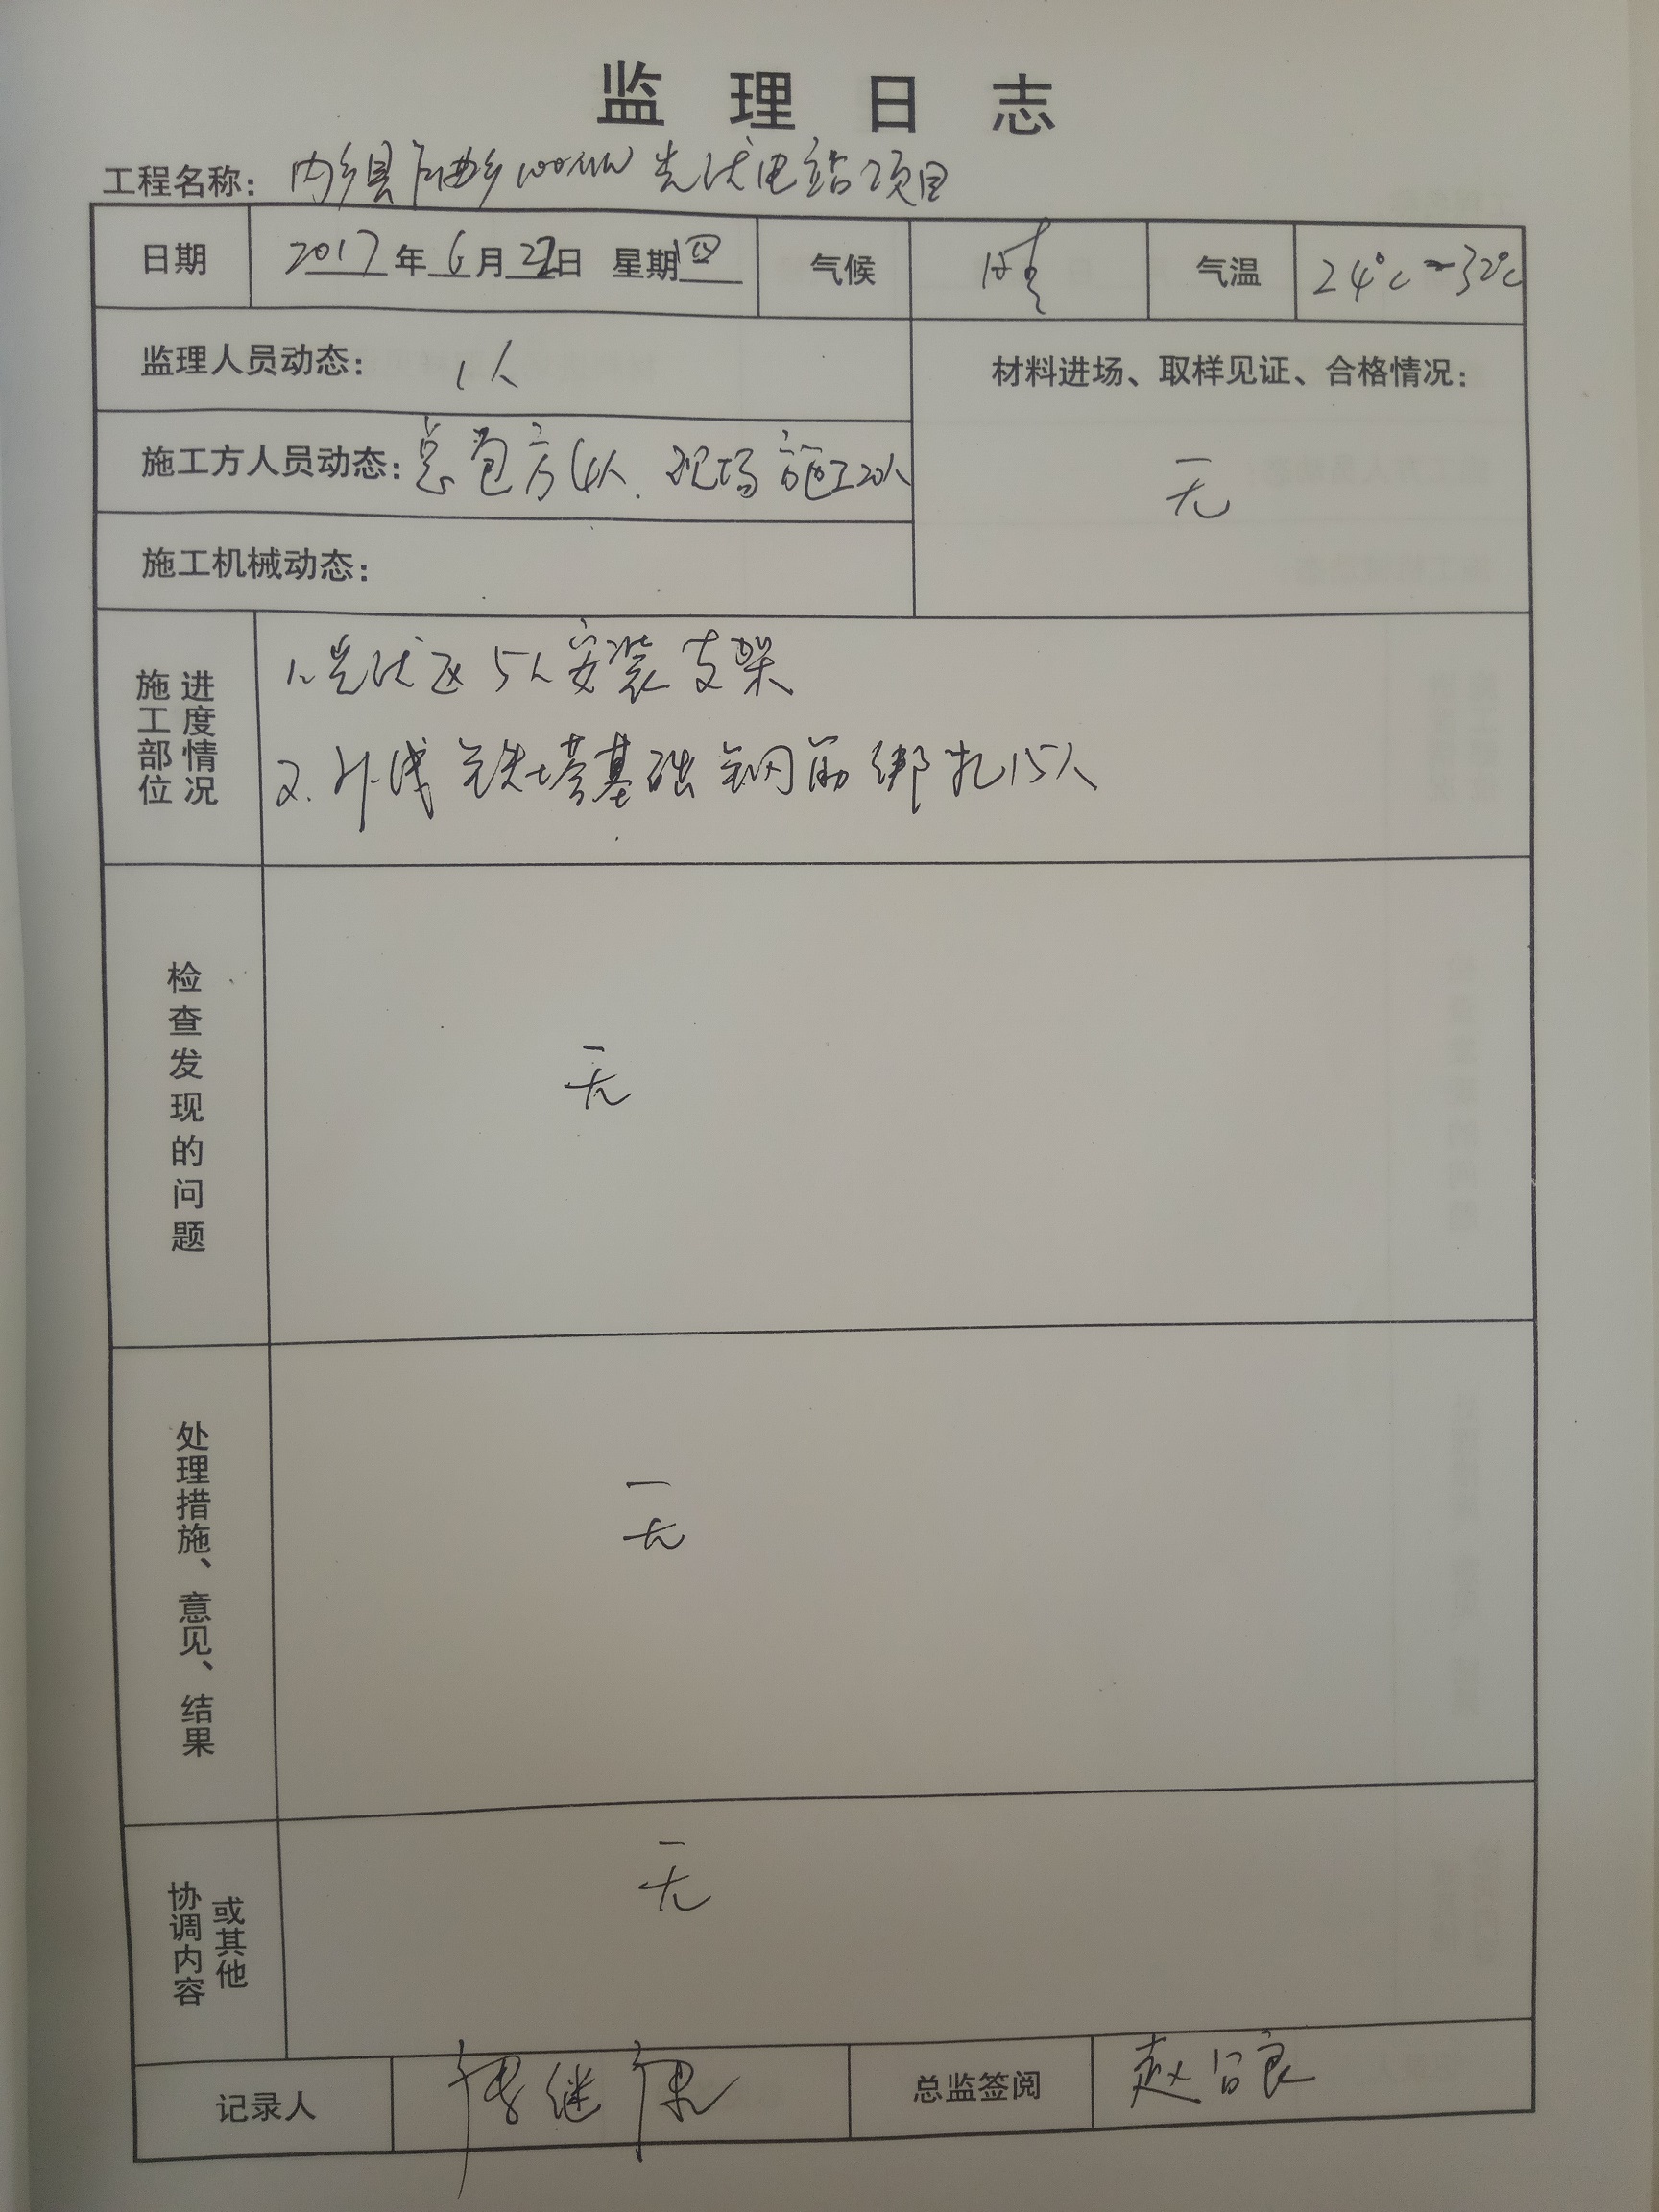 监理日志
工程名称：内乡县 乡100MW光伏电站项目
日期 2017年6月22日 星期四 气候 晴 气温 24℃~32℃
监理人员动态：1人
材料进场、取样见证、合格情况：
无
施工方人员动态：总包方4人.现场施工20人
施工机械动态：
施工部位
进度情况
1.光伏区5人安装支架
2.外线铁塔基础钢筋绑扎15人
检查发现的问题
无
处理措施、意见、结果
无
协调内容
或其他
无
记录人 继 总监签阅 赵 良